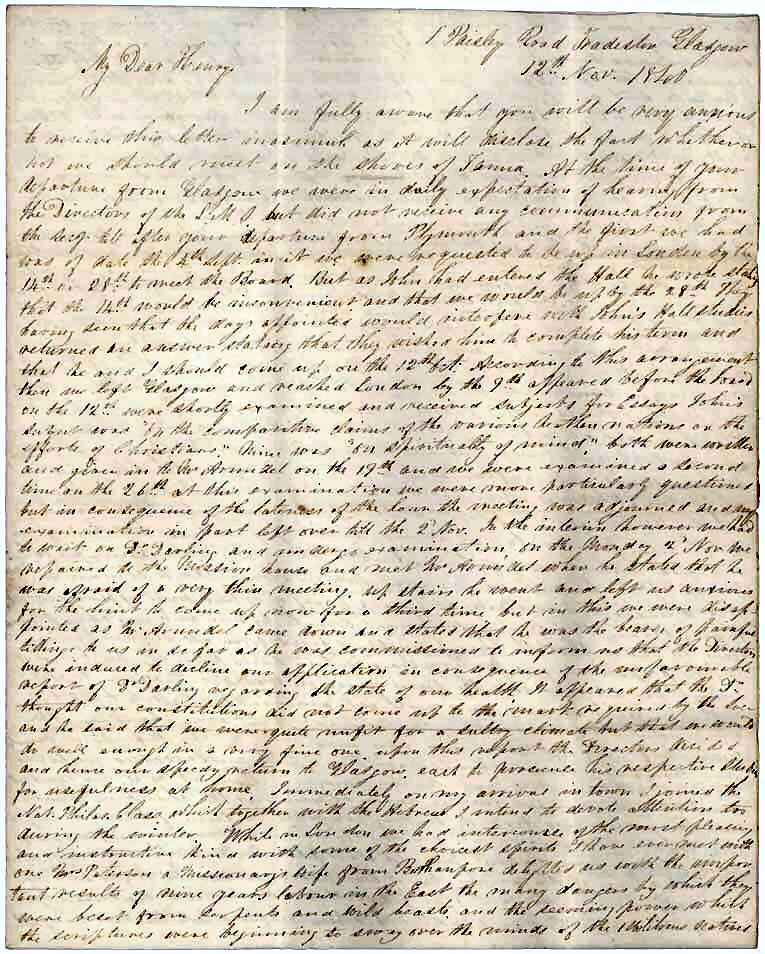 1 Paisley Road Tradeston Glasgow
12th Nov. 1840
My Dear Henry
I am fully aware that you will be very anxious
to receive this letter inasmuch as it will disclose the fact whether or
not we should meet on the shores of Tanna. At the time of your
departure from Glasgow we were in daily expectation of hearing from
the Directors of the L M S but did not receive any communication from
the Secy till after your departure from Plymouth and the first we had
was of date the 4th Sept in it we were requested to be up in London by the
14th or 28th to meet the Board. But as John had entered the Hall he wrote stating
that the 14th would be inconvenient and that we would be up by the 28th They
having seen that the days appointed would interfere with John's Hall studies
returned an answer stating that they wished him to complete his term and
that he and I should come up on the 12th Oct. According to this arrangement
then we left Glasgow and reached London by the 9th appeared before the board
on the 12th were shortly examined and received subjects for Essays John's
subject was "On the comparative claims of the various heathen nations on the
efforts of Christians." Mine was "on spirituality of mind" both were written
and given in to Mr Arundel on the 19th and we were examined a second
time on the 26th at this examination we were more particularly questioned
but in consequence of the lateness of the hour the meeting was adjourned and my
examination in part left over till the 2 Nov. In the interim however we had
to wait on Dr Darling and undergo examination, on the Monday 2d Nov we
repaired to the Mission house and met Mr Arundel when he stated that he
was afraid of a very thin meeting, up stairs he went and left us anxious
for the hint to come up now for a third time but in this we were disap
pointed as Mr Arundel came down and states that he was the bearer of painful
tidings to us in so far as he was commissioned to inform us that the Directors
were induced to decline our application in consequence of the unfavourable
report of Dr Darling regarding the state of our health It appeared that the Dr
thought our constitutions did not come up to the mark required by the Soc
and he said that we were quite unfit for a sultry climate but that we would
do well enough in a very fine one upon this report the Directors decided
and hence our speedy return to Glasgow, each to prosecute his respective studies
for usefulness at home. Immediately on my arrival in town I joined the
Nat. Philos. Class which together with the Hebrew I intend to devote attention too
during the winter. While in London we had intercourse of the most pleasing
and instructive kind with some of the choicest spirits I have ever met with
one Mrs Paterson a Missionary's Wife from Berhampore delighted us with the impor
tant results of nine years labour in the East the many dangers by which they
were beset from serpents and wild beasts and the seeming power which
the scriptures were beginning to sway over the minds of the natives